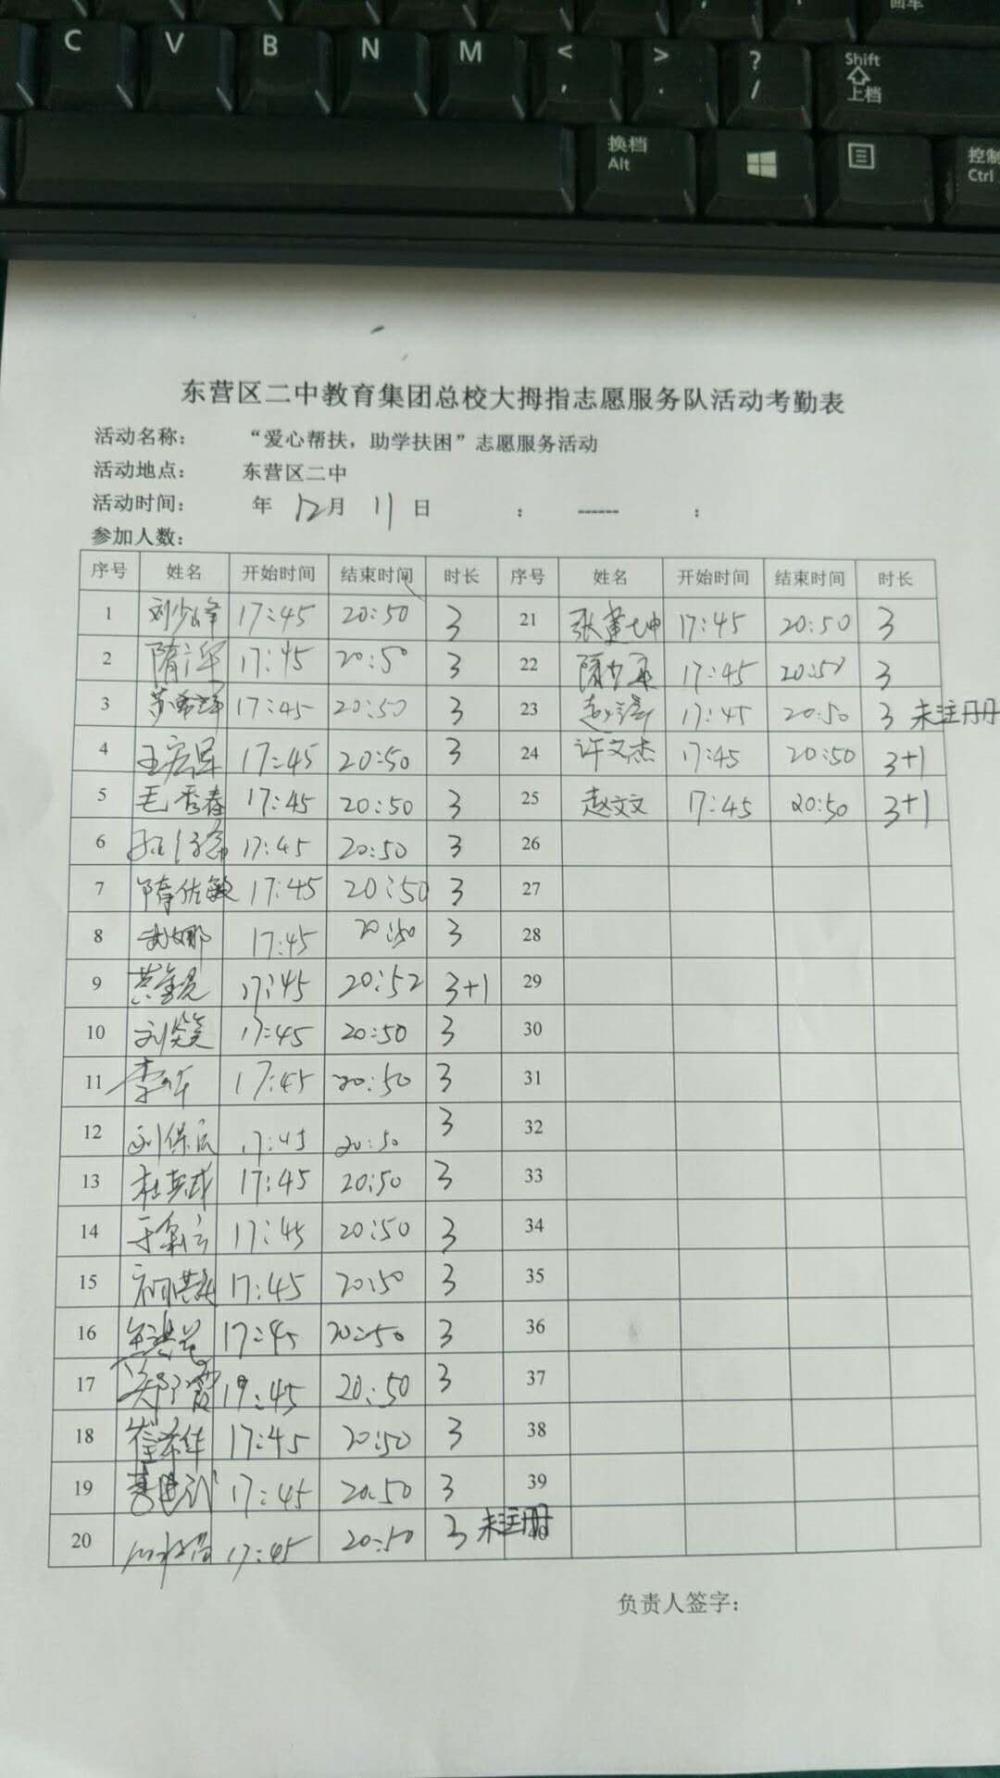 回车
C V B N M < , > . ? / Shift 上档
换档 Alt 控制 Ctrl
东营区二中教育集团总校大拇指志愿服务队活动考勤表
活动名称: “爱心帮扶，助学扶困”志愿服务活动
活动地点: 东营区二中
活动时间: 年 12月 11日 : ------ :
参加人数:
序号 姓名 开始时间 结束时间 时长 序号 姓名 开始时间 结束时间 时长
1 刘少峰 17:45 20:50 3 21 张 坤 17:45 20:50 3
2 隋 军 17:45 20:50 3 22 17:45 20:50 3
3 17:45 20:50 3 23 赵 17:45 20:50 3 未注册
4 王宏军 17:45 20:50 3 24 许文杰 17:45 20:50 3+1
5 毛秀春 17:45 20:50 3 25 赵文文 17:45 20:50 3+1
6 17:45 20:50 3 26
7 隋佐敏 17:45 20:50 3 27
8 武娜 17:45 20:50 3 28
9 黄 17:45 20:52 3+1 29
10 刘笑 17:45 20:50 3 30
11 李 17:45 20:50 3 31
12 刘保 17:45 20:50 3 32
13 杜英武 17:45 20:50 3 33
14 于 17:45 20:50 3 34
15 17:45 20:50 3 35
16 17:45 20:50 3 36
17 郑 霞 17:45 20:50 3 37
18 崔 华 17:45 20:50 3 38
19 17:45 20:50 3 39
20 17:45 20:50 3 未注册 40
负责人签字: